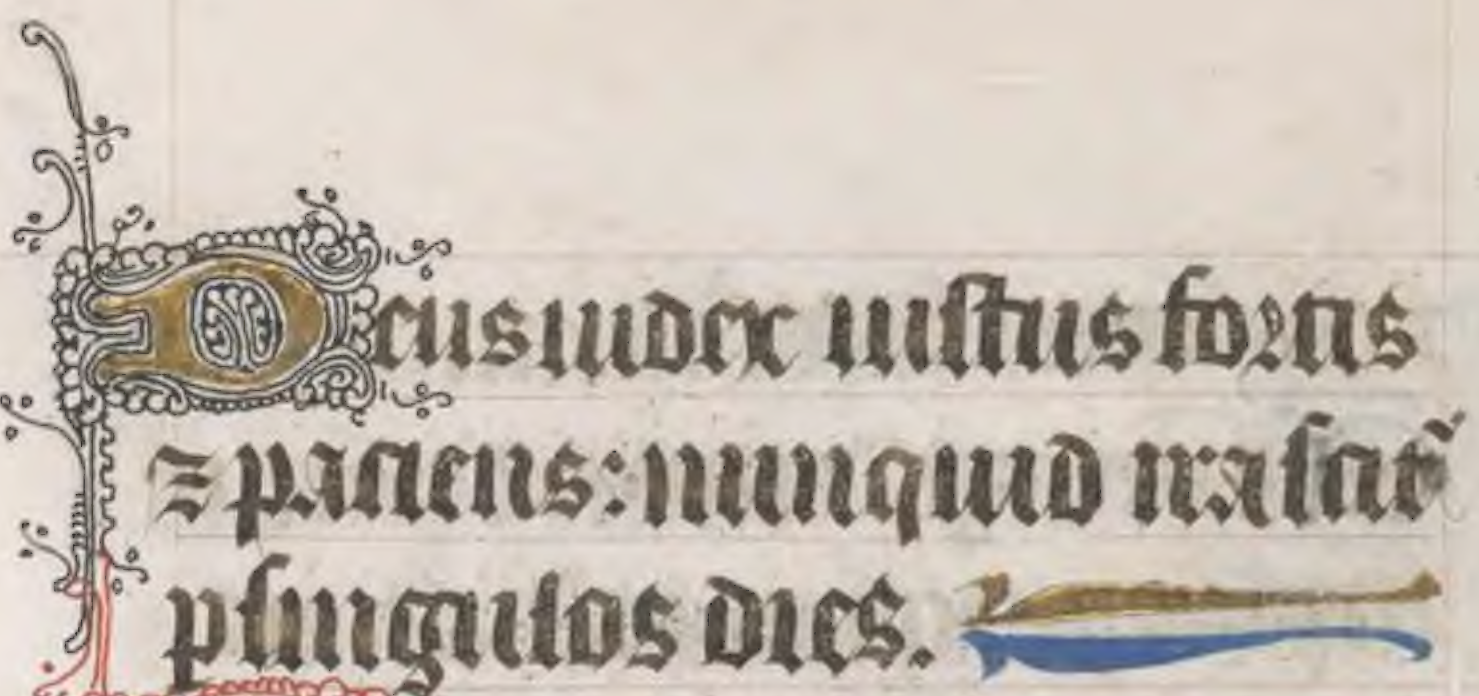 Deus iudex iustus fortis
⁊ paciens: nunquid irascat᷑
p singulos dies.